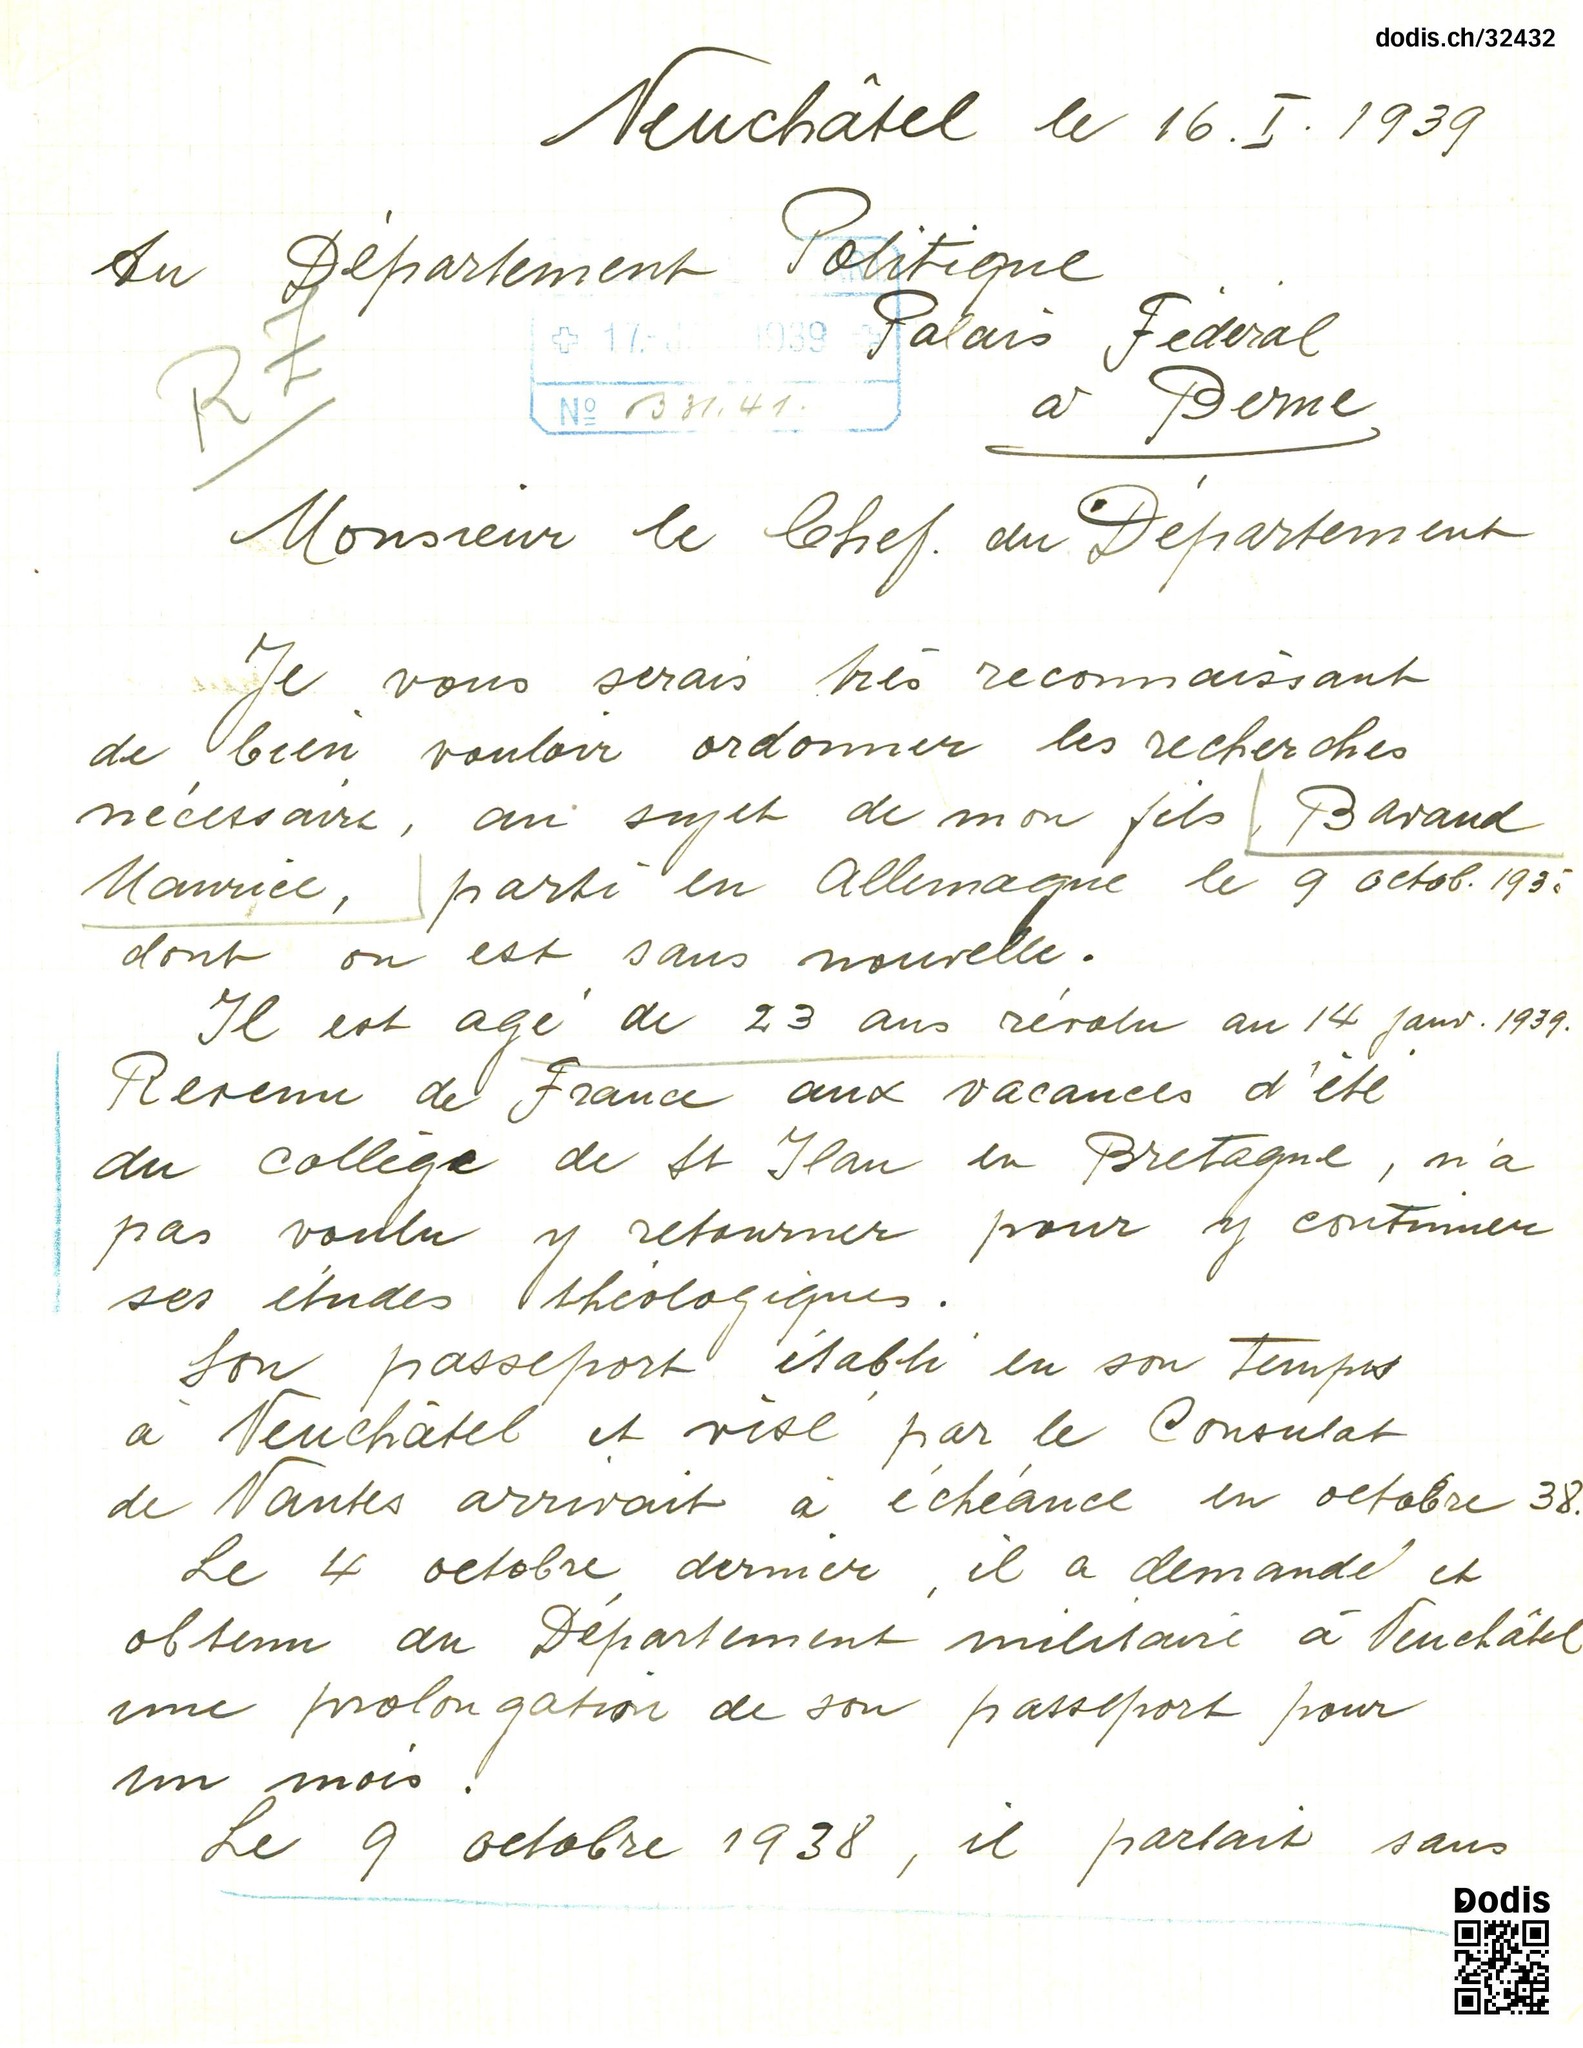 dodis.ch/32432
Neuchâtel le 16.I.1939
Au Département Politique
Palais Fédéral
à Berne
17. 1939
No B 31.41.
Monsieur le Chef. du Département
Je vous serais très reconnaissant
de bien vouloir ordonner les recherches
nécessaire, au sujet de mon fils, Bavaud
Maurice, parti en Allemagne le 9 octob. 193
dont on est sans nouvelle.
Il est agé de 23 ans révolu au 14 janv. 1939.
Revenu de France aux vacances d'été
du collège de St Ilan en Bretagne, n'a
pas voulu y retourner pour y continuer
ses études théologiques.
Son passeport établi en son temps
à Neuchâtel et visé par le Consulat
de Nantes arrivait à échéance en octobre 38.
Le 4 octobre dernier, il a demandé et
obtenu du Département militaire à Neuchâtel
une prolongation de son passeport pour
un mois.
Le 9 octobre 1938, il partait sans
Dodis